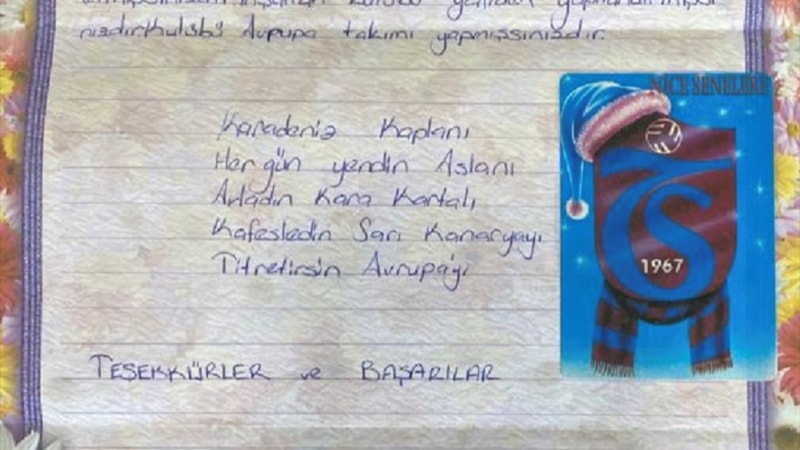 nizdir.Kulübü Avrupa takımı yapmışsınızdır.
Karadeniz Kaplanı
Her gün yendin Aslanı
Avladın Kara Kartalı
Kafesledin Sarı Kanaryayı
Titretirsin Avrupa'yı
TEŞEKKÜRLER ve BAŞARILAR
NİCE SENELERE
TS
1967